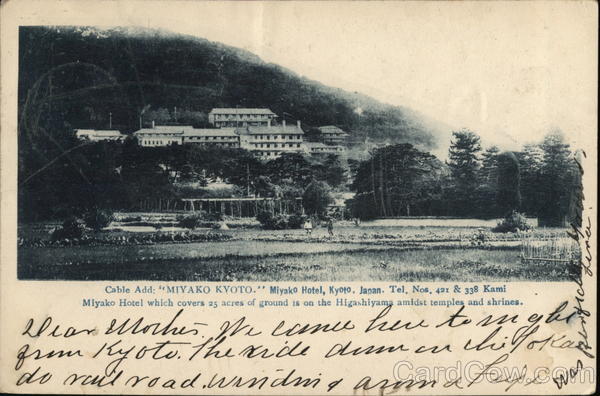 Cable Add: "MIYAKO KYOTO." Miyako Hotel, Kyoto, Japan. Tel. Nos. 421 & 338 Kami
Miyako Hotel which covers 25 acres of ground is on the Higashiyama amidst temples and shrines.
Dear Mother, We came here to night
from Kyoto. The ride down on the Tokai
do rail road, winding around
was
CardCow.com